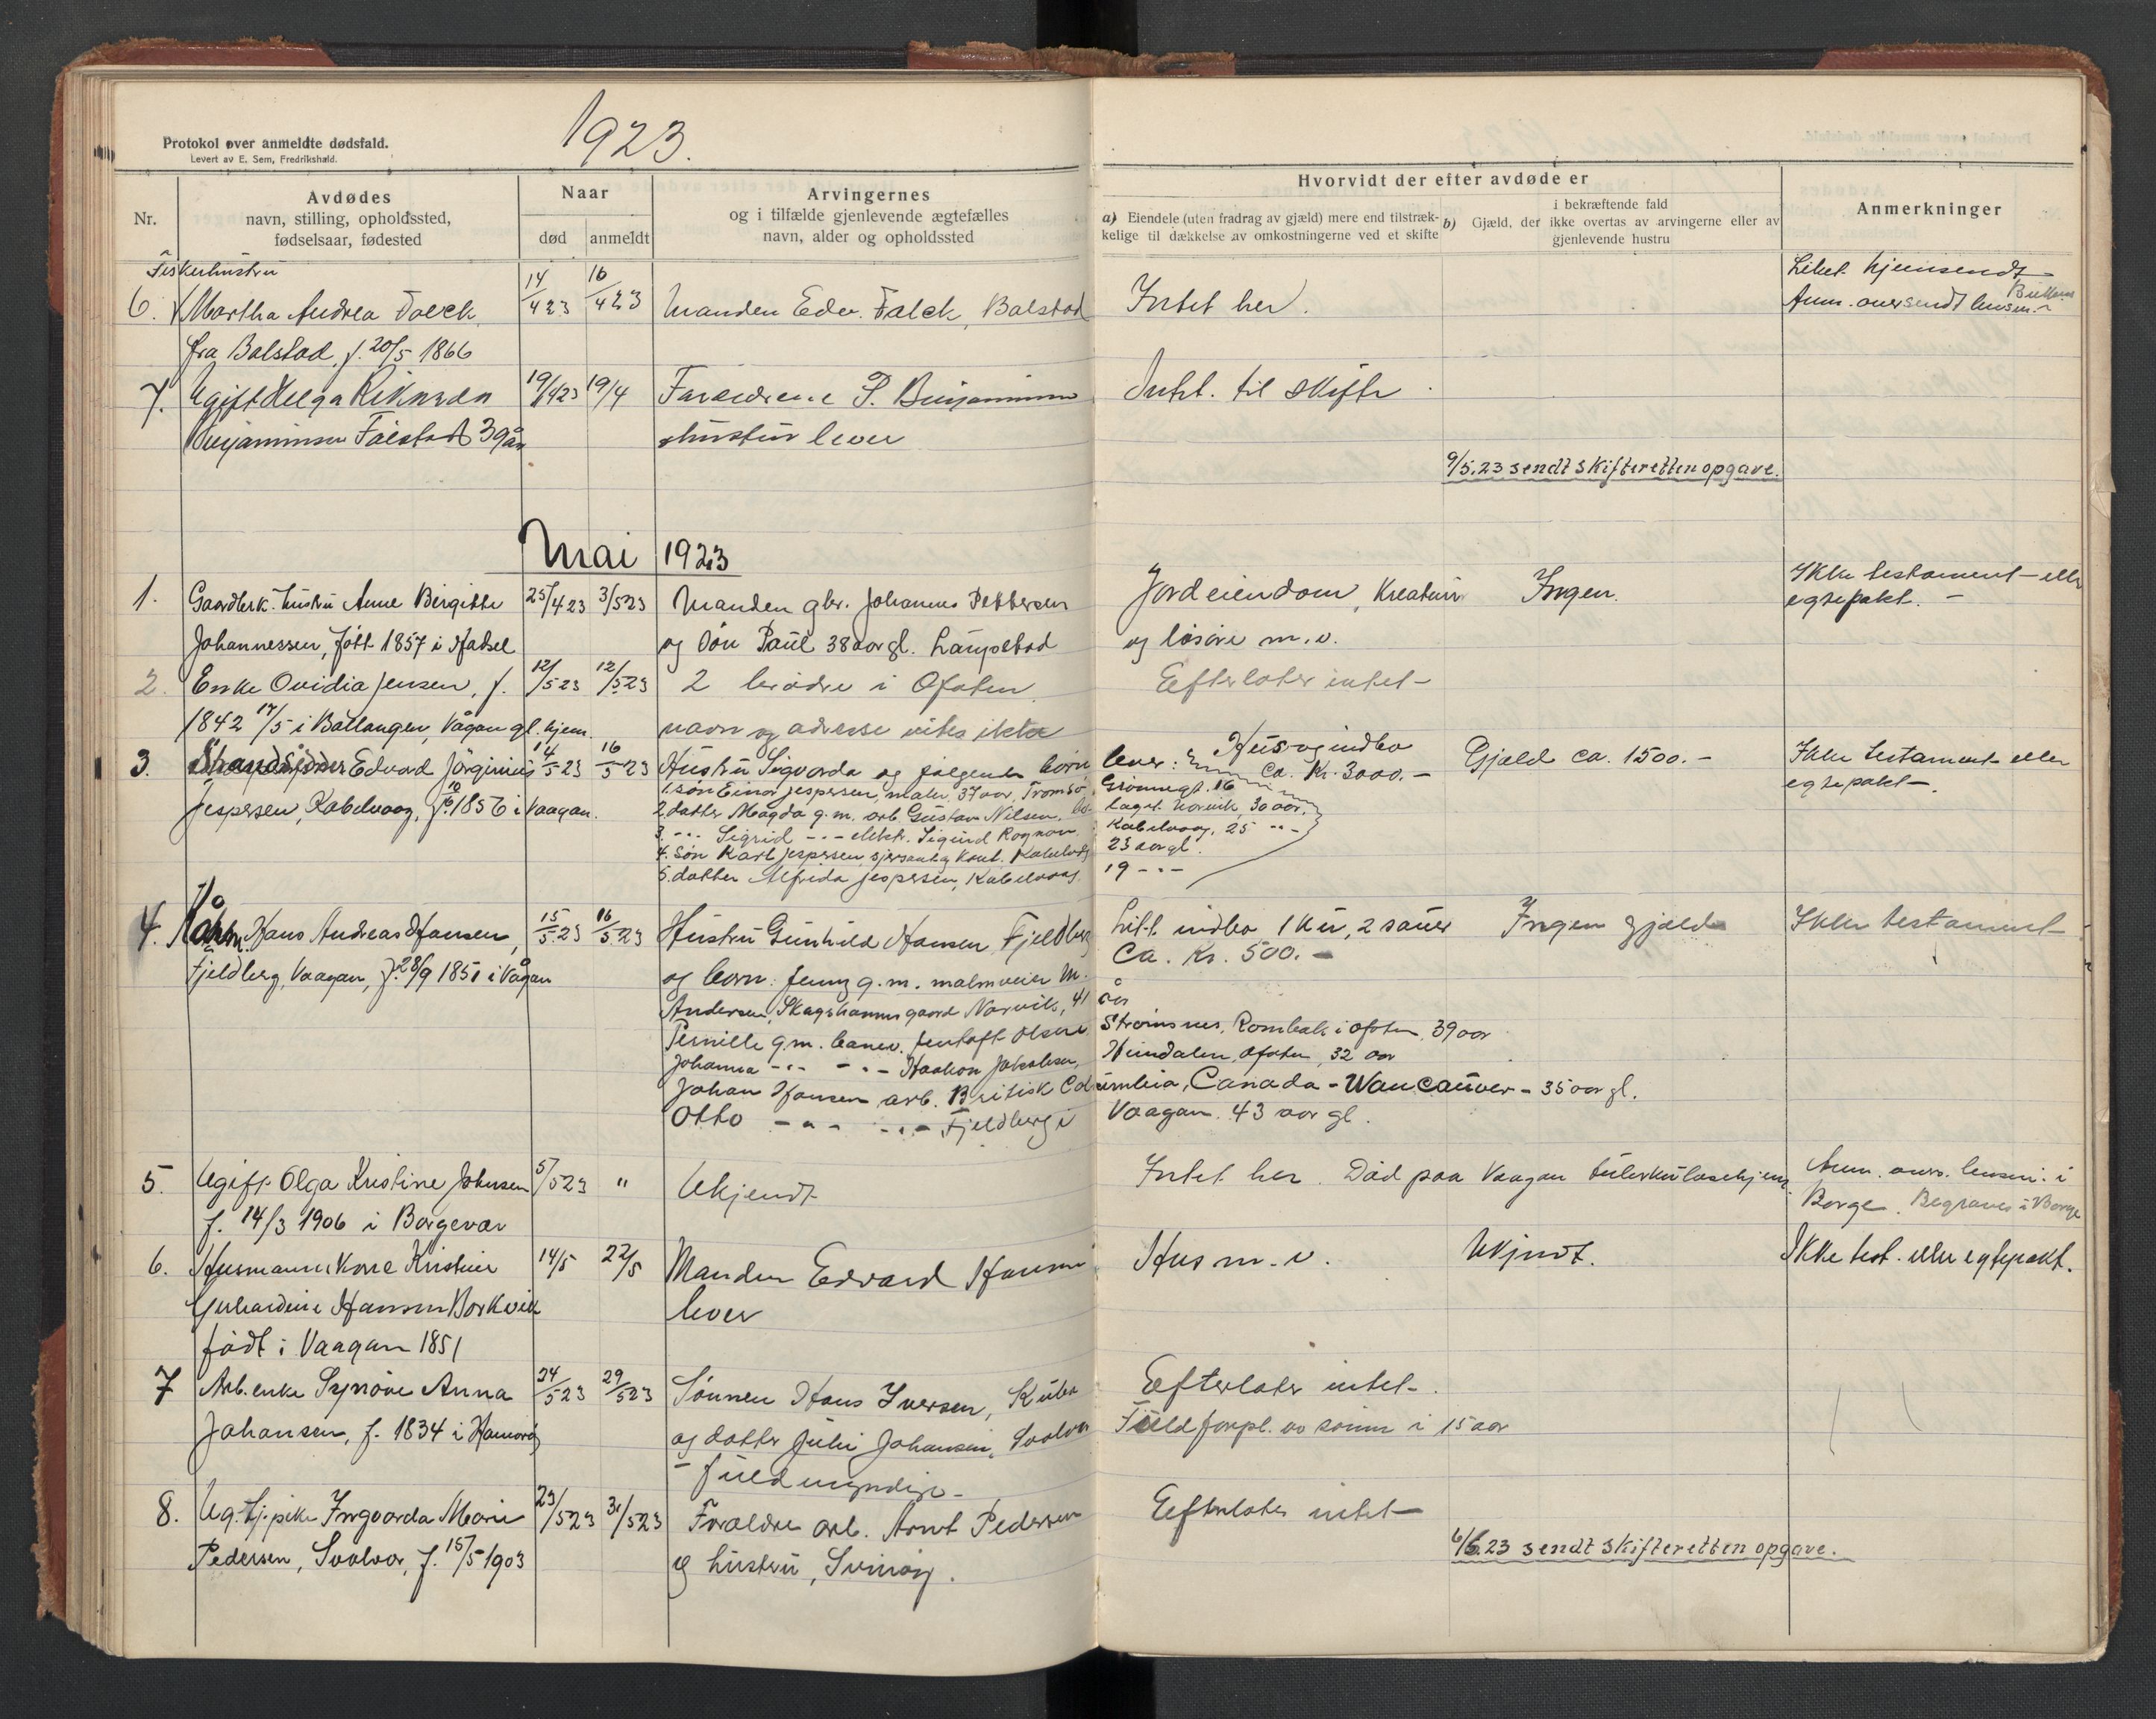 1923.
Protokol over anmeldte dødsfald.
Levert av E. Sem, Fredrikshald.
Nr.
Avdødes
navn, stilling, opholdssted,
fødselsaar, fødested
Naar
død anmeldt
Arvingernes
og i tilfælde gjenlevende ægtefælles
navn, alder og opholdssted
Hvorvidt der efter avdøde er
a) Eiendele (uten fradrag av gjæld) mere end tilstræk-
kelige til dækkelse av omkostningerne ved et skifte
i bekræftende fald
b) Gjæld, der ikke overtas av arvingerne eller av
gjenlevende hustru
Anmerkninger
Fiskerhustru
6. Martha Andrea Falck 14/4 23 16/4 23 Manden Edv. Falck, Balstad Intet her. Liket hjemsendt
fra Balstad, f. 20/5 1866 Anm. oversendt lensm. Buksnes
7. Ugift Helga Rikarda 19/4 23 19/4 Forældrene P. Benjaminsen Intet til skifte
Benjaminsen Falstad 39 år hustru lever
9/5.23 sendt skifteretten opgave.
Mai 1923
1. Gaardbrk. hustru Anne Birgitte 25/4 23 3/5 23 Manden gbr. Johannes Pettersen Jordeiendom, Kreaturer Ingen. Ikke testament eller
Johannessen, født 1857 i Hadsel og søn Paul 38 aar gl. Laupstad og løsøre m.v. egtepakt. -
2. Enke Ovidia Jensen, f. 12/5 23 12/5 23 2 brødre i Ofoten Efterlater intet
1842 17/5 i Ballangen, Vågan gl. hjem. navn og adresse vites ikke
3. Strandsidder Edvard Jørginius 14/5 23 16/5 23 Hustru Sigvarda og følgende børn lever: Hus og indbo Gjæld ca. 1500.- Ikke testament eller
Jespersen, Kabelvaag, f. 10/6 1856 i Vaagan. ca. Kr. 3000.- egtepakt -.
1. søn Einar Jespersen, maler, 37 aar, Tromsø, Grønnegt. 16
2. datter Magda g.m. arb. Gustav Nilsen, Narvik, 30 aar.
3. -"- Sigrid -"- elektr. Sigurd Rognan. Kabelvaag, 25 -"-
4. søn Karl Jespersen, Kabelvåg 23 aar gl.
5. datter Alfrida Jespersen, Kabelvaag. 19 -"-
4. Kårm. Hans Andreas Hansen, 15/5.23 16/5.23 Hustru Gunhild Hansen, Fjeldberg Litt indbo 1 ku, 2 sauer Ingen gjæld Ikke testament
Fjeldberg, Vaagan, f. 28/9 1851 i Vågan og børn: Jenny g.m. malmveier M. Ca. Kr. 500.-
Andersen, Skagshamngaard Narvik, 41 år
Pernille g.m. banev. Jentoft Olsen Strømsnes, Rombak i Ofoten, 39 aar
Johanna -"- -"- Haakon Jakobsen, Hundalen, Ofoten, 32 aar
Johan Hansen arb. Britisk Columbia, Canada - Wancauver - 35 aar gl.
Otto -"- -"- Fjeldberg i Vaagan. 43 aar gl.
5. Ugift Olga Kristine Johnsen 5/5 23 " Ukjendt Intet her. Død paa Vaagan tuberkulosehjem. Anm. overs. lensm. i
f. 14/3 1906 i Borgevær Borge. Begraves i Borge
6. Husmannskone Kristine 14/5 22/5 Manden Edvard Hansen Hus m.v. Ukjendt. Ikke test. eller egtepakt.
Gerhardine Hansen Børkvik lever
født i Vaagan 1851
7 Arb. enke Synøve Anna 24/5 23 29/5 23 Sønnen Hans Iversen, Efterlater intet.
Johansen, f. 1834 i Hamarøy og datter Juli Johansen, Svolvær Fuld forpl. av sønn i 15 aar
- fuldmyndige -
8. Ug. tj.pike Ingvarda Marie 23/5 23 31/5 23 Foraldre arb. Arnt Pedersen Efterlater intet
Pedersen, Svolvær, f. 15/5 1903 og hustru, Svinøy.
6/6.23 sendt skifteretten opgave.